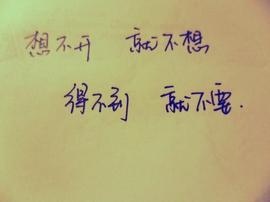 想不开 就不想
得不到 就不要.